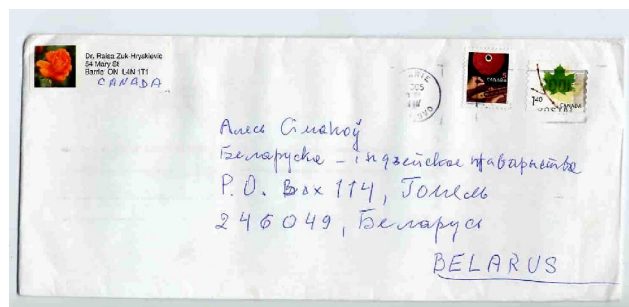 Dr. Raisa Zuk-Hryskievic
54 Mary St
Barrie ON L4N 1T1
CANADA
CANADA
CANADA
1.40
Алесь Сімакоў
Беларуска - індзейскае таварыства
P.O. Box 114, Гомель
246049, Беларусь
BELARUS